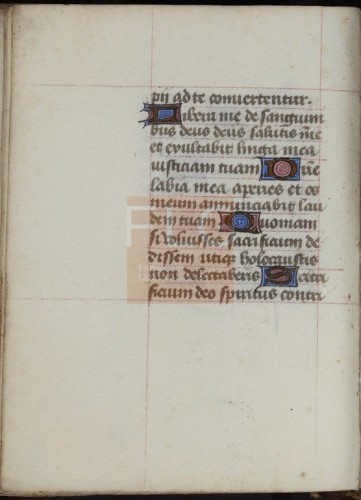 pij ad te convertentur.
Libera me de sanguini
bus deus deus salutis mee
et exultabit lingua mea
iusticiam tuam Dne
labia mea aperies et os
meum annunciabit lau
dem tuam Quoniam
si voluisses sacrificium de
dissem utiq holocaustis
non delectaberis Sacri
ficium deo spiritus contri